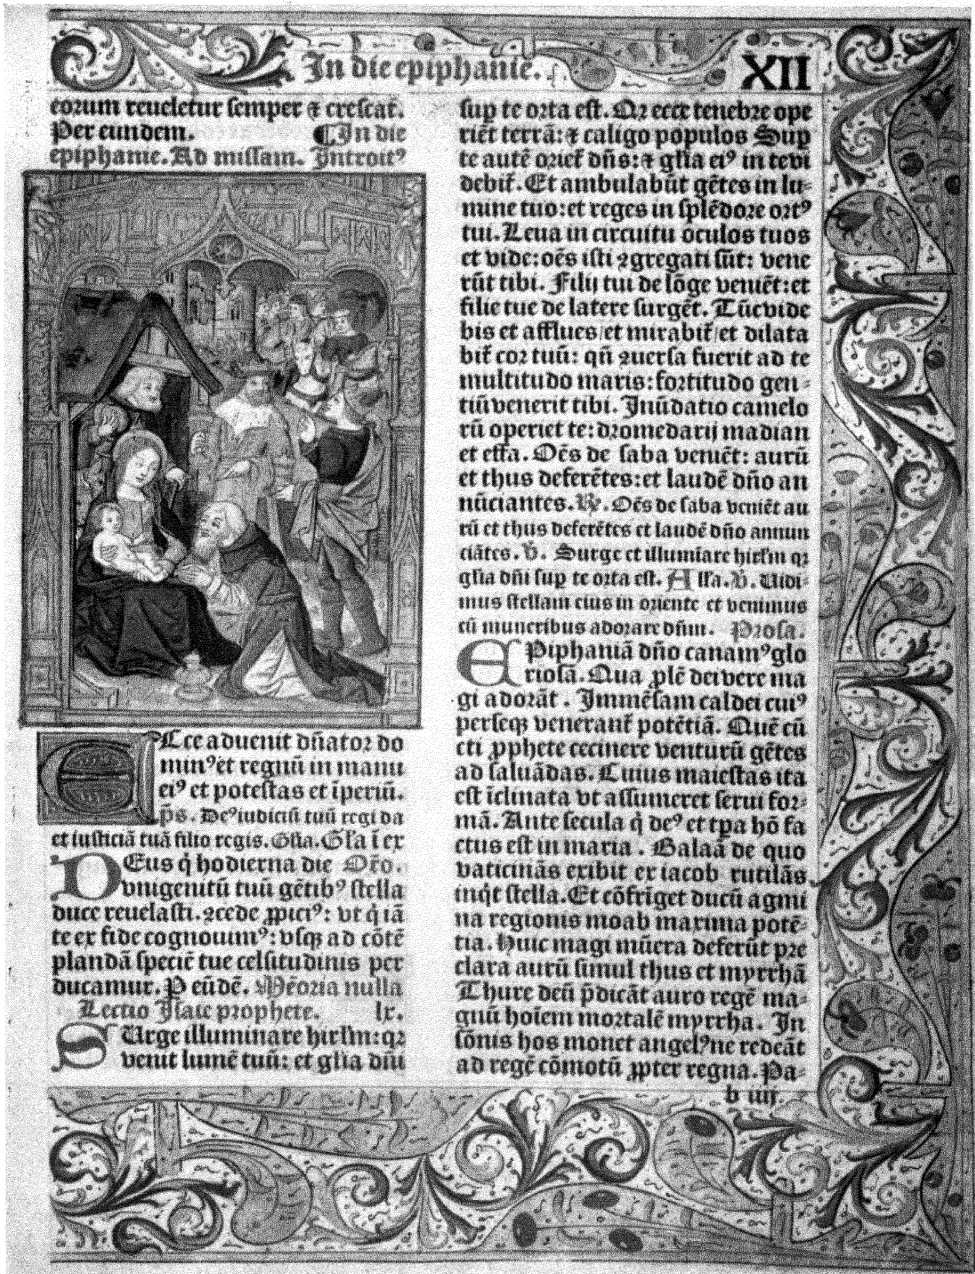 In die epiphanie.
XII
eorum reueletur semper ⁊ crescat.
Per eundem. ¶In die
epiphanie. Ad missam. Introitꝰ
Ecce aduenit dn̄ator do
minꝰ et regnū in manu
eiꝰ et potestas et īperiū.
ps. Deꝰ iudiciū tuū regi da
et iusticiā tuā filio regis. Gl̄ia. Gl̄a ī ex
DEus q̇ hodierna die Or̄o.
vnigenitū tuū gētibꝰ stella
duce reuelasti. ꝯcede ꝓpiciꝰ: vt q̇ iā
te ex fide cognouimꝰ: vsqꝫ ad cōtē
plandā speciē tue celsitudinis per
ducamur. P eūdē. Mēoria nulla
Lectio Isaie prophete. lx.
SUrge illuminare hierl̄m: qꝛ
venit lumē tuū: et gl̄ia dn̄i
sup te orta est. Qꝛ ecce tenebre ope
riēt terrā: ⁊ caligo populos Sup
te autē oriet̄ dn̄s: ⁊ gl̄ia eiꝰ in te vi
debit̄. Et ambulabūt gētes in lu-
mine tuo: et reges in splēdore ortꝰ
tui. Leua in circuitu oculos tuos
et vide: oēs isti ꝯgregati sūt: vene
rūt tibi. Filij tui de lōge veniēt: et
filie tue de latere surgēt. Tūc vide
bis et afflues/et mirabit̄/et dilata
bit̄ cor tuū: qn̄ ꝯuersa fuerit ad te
multitudo maris: fortitudo gen-
tiū venerit tibi. Inūdatio camelo
rū operiet te: dromedarij madian
et effa. Oēs de saba veniēt: aurū
et thus deferētes: et laudē dn̄o an
nūciantes. ℟. Oēs de saba veniēt au
rū et thus deferētes et laudē dn̄o annun
ciātes. ℣. Surge et illumīare hierl̄m qꝛ
gl̄ia dn̄i sup te orta est. All̄a. ℣. Uidi-
mus stellam eius in oriente et venimus
cū muneribus adorare dn̄m. Prosa.
EPiphaniā dn̄o canamꝰ glo
riosā. Qua ꝓlē dei vere ma
gi adorāt. Immēsam caldei cuiꝰ
perseqꝫ venerant̄ potētiā. Quē cū
cti ꝓphete cecinere venturū gētes
ad saluādas. Cuius maiestas ita
est īclinata vt assumeret serui for-
mā. Ante secula q̇ deꝰ et tp̄a hō fa
ctus est in maria. Balaā de quo
vaticinās exibit ex iacob rutilās
inq̇t stella. Et cōfriget ducū agmi
na regionis moab maxima potē-
tia. Huic magi mūera deferūt pre
clara aurū simul thus et myrrhā
Thure deū p̄dicāt auro regē ma-
gnū hoīem mortalē myrrha. In
sōnis hos monet angelꝰ ne redeāt
ad regē cōmotū ꝓpter regna. Pa-
b iiij